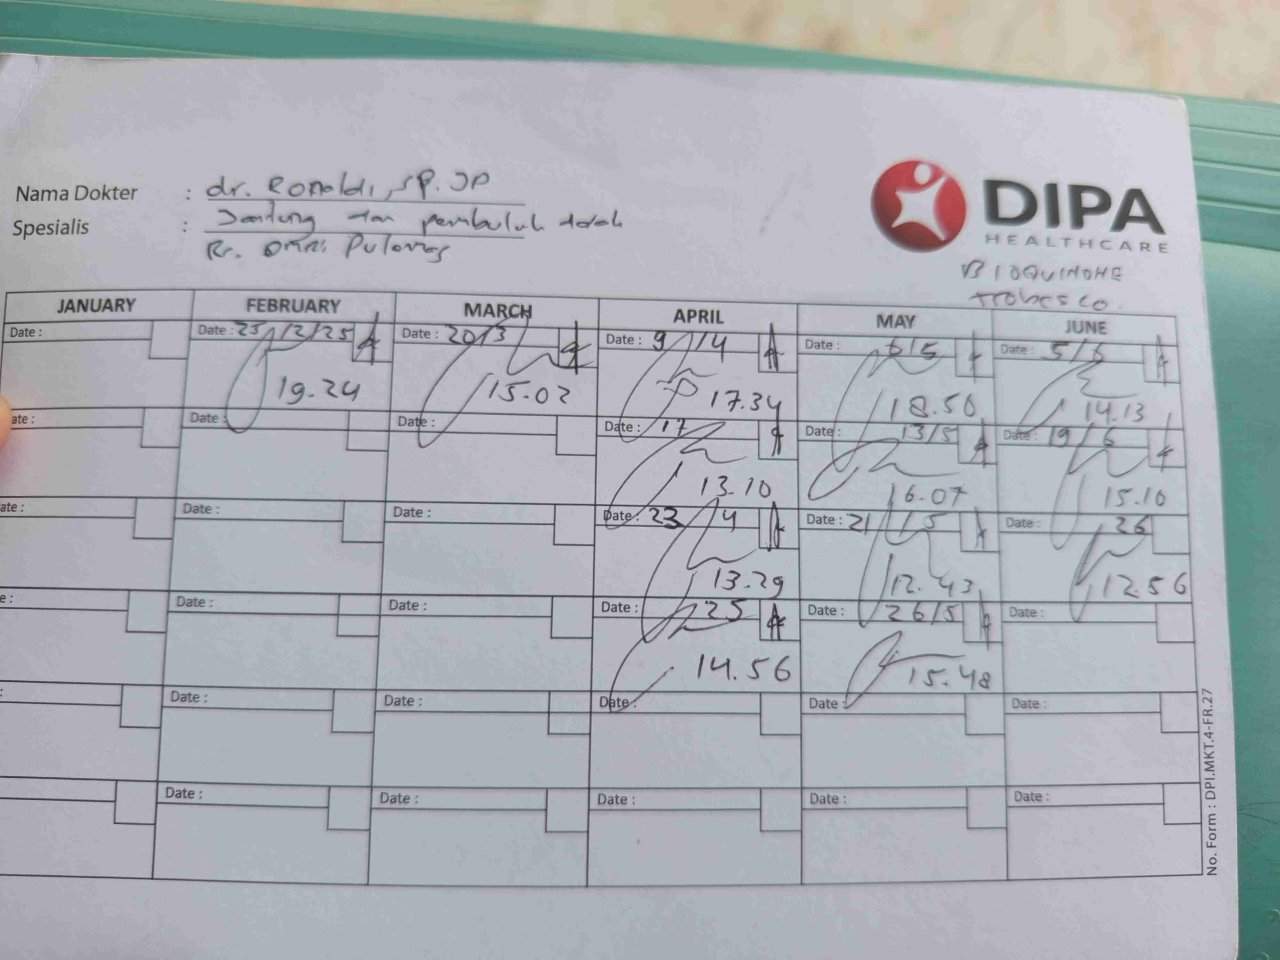 Nama Dokter : dr. Ronaldi, SP. JP
Spesialis : Jantung dan pembuluh darah
Rs. Omni Pulomas
DIPA
HEALTHCARE
BIOQUINONE
JANUARY FEBRUARY MARCH APRIL MAY JUNE
Date : Date : 25/2/25 Date : 20/3 Date : 9/4 Date : 6/5 Date : 5/6
19.24 15.02 17.34 18.50 14.13
ate : Date : Date : Date : 17 Date : 13/5 Date : 19/6
13.10 16.07 15.10
ate : Date : Date : Date : 23 4 Date : 21/5 Date : 26
13.29 12.43 12.56
e : Date : Date : Date : 25 Date : 26/5 Date :
14.56 15.48
: Date : Date : Date : Date : Date :
Date : Date : Date : Date : Date :
No. Form : DPI.MKT.4-FR.27